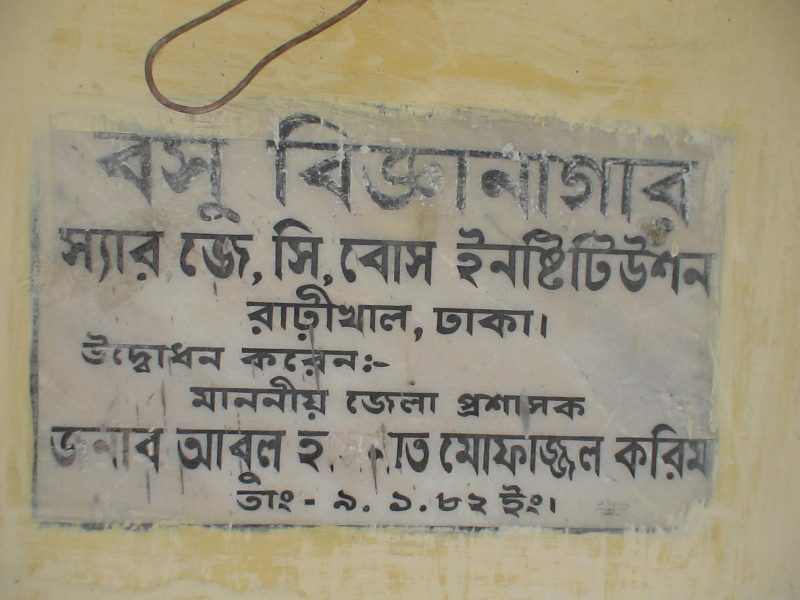 বসু বিজ্ঞানাগার
স্যার জে, সি, বোস ইনষ্টিটিউশন
রাঢ়ীখাল, ঢাকা।
উদ্বোধন করেন:-
মাননীয় জেলা প্রশাসক
জনাব আবুল মোফাজ্জল করিম
তাং - ৯. ১. ৮২ ইং।